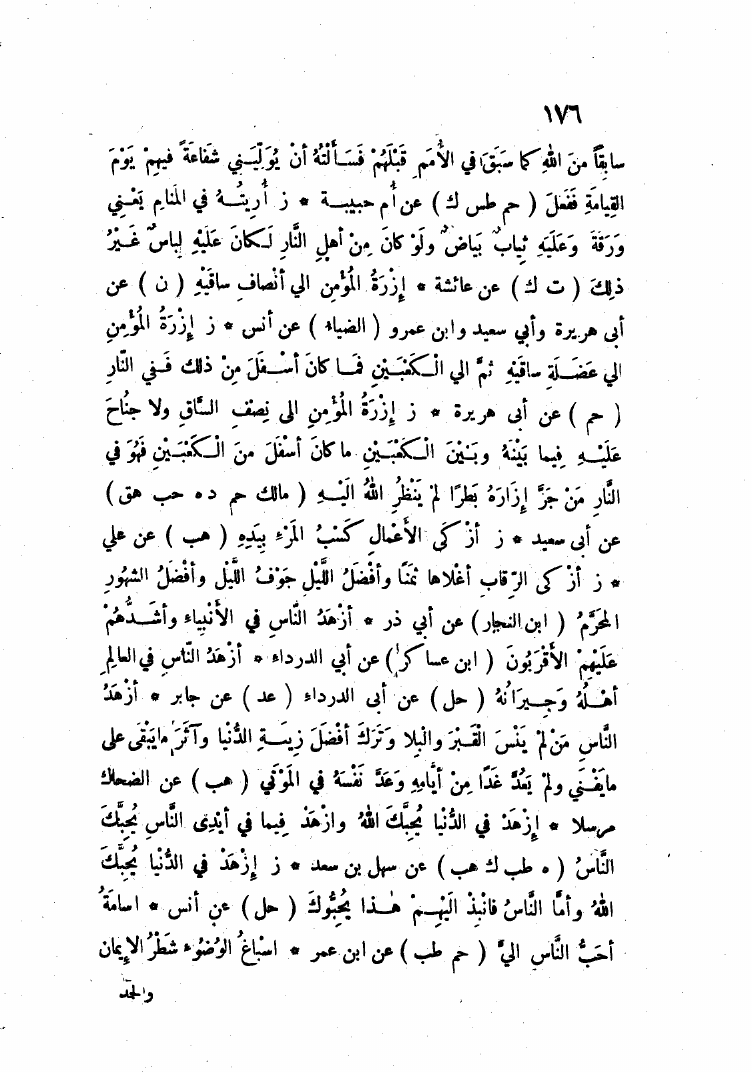 ١٧٦
سابِقاً منَ اللهِ كما سَبَقَ في الأُمَمِ قَبْلَهُمْ فَسَأَلْتُهُ أنْ يُوَلِّيَنِي شَفاعَةً فيهِمْ يَوْمَ
القِيامَةِ فَفَعَلَ ( حم طس ك ) عن أُم حبيبة * ز أُرِيتُـهُ في المَنامِ يَعْنِي
وَرَقَةَ وَعَلَيَهِ ثِيابٌ بَياضٌ ولَوْ كانَ مِنْ أهلِ النَّارِ لَـكانَ عَلَيْهِ لِباسٌ غَيْرُ
ذلِكَ ( ت ك ) عن عائشة * إِزْرَةُ المُؤْمنِ الي أنْصافِ ساقَيْهِ ( ن ) عن
أبى هريرة وأبي سعيد وابن عمرو ( الضياء ) عن أنس * ز إِزْرَةُ المُؤْمنِ
الي عَضَـلَةِ ساقَيْهِ ثمَّ الي الْـكَعْبَـيْنِ فَمـا كانَ أسْـفَلَ مِنْ ذلك فَـفي النَّارِ
( حم ) عن أبى هريرة * ز إِزْرَةُ المُؤْمنِ الى نِصْفِ السَّاقِ ولا جُناحَ
عَلَيْـهِ فِيما بَيْنَهُ وبَـيْنَ الْـكَعْبَيْنِ ما كانَ أسْفَلَ منَ الْـكَعْبَـيْنِ فَهُوَ في
النَّارِ مَنْ جَرَّ إِزَارَهُ بَطَرًا لَمْ يَنْظُرِ اللهُ الَيْـهِ ( مالك حم د ه حب هق )
عن أبى سعيد * ز أزْكَى الأَعْمالِ كَسْبُ المَرْءِ بِيَدِهِ ( هب ) عن علي
* ز أزْكى الرِّقابِ أغْلاها ثَمَنًا وأفْضَلُ اللَّيْلِ جَوْفُ اللَّيْلِ وأفْضَلُ الشهُورِ
المحَرَّمُ ( ابن النجار ) عن أبي ذر * أزْهَدُ النَّاسِ في الأنْبِياءِ وأشَـدُّهُمْ
عَلَيْهِمْ الأَقْرَبُونَ ( ابن عساكر ) عن أبي الدرداء * أزْهَدُ النَّاسِ في العالِمِ
أهْـلُهُ وَجِـيرَانُهُ ( حل ) عن أبى الدرداء ( عد ) عن جابر * أزْهَدُ
النَّاسِ مَنْ لَمْ يَنْسَ الْقَبْرَ والْبِلا وَتَرَكَ أفْضَلَ زِينَـةِ الدُّنْيا وآثَرَ مايَبْقَى على
مايَفْـنَي ولَمْ يَعُدَّ غَدًا مِنْ أيَّامِهِ وَعَدَّ نَفْسَهُ في المَوْتَي ( هب ) عن الضحاك
مرسلا * إِزْهَدْ في الدُّنْيا يُحِبَّكَ اللهُ وازْهَدْ فِيما في أيْدِى النَّاسِ يُحِبَّكَ
النَّاسُ ( ه طب ك هب ) عن سهل بن سعد * ز إِزْهَدْ في الدُّنْيا يُحِبَّكَ
اللهُ وأمَّا النَّاسُ فانْبِذْ الَيْهِـمْ هٰـذا يُحِبُّوكَ ( حل ) عن أنس * اسامَةُ
أحَبُّ النَّاسِ اليَّ ( حم طب ) عن ابن عمر * اسْباغُ الوُضُوءِ شَطْرُ الإيمانِ
والحَمْد